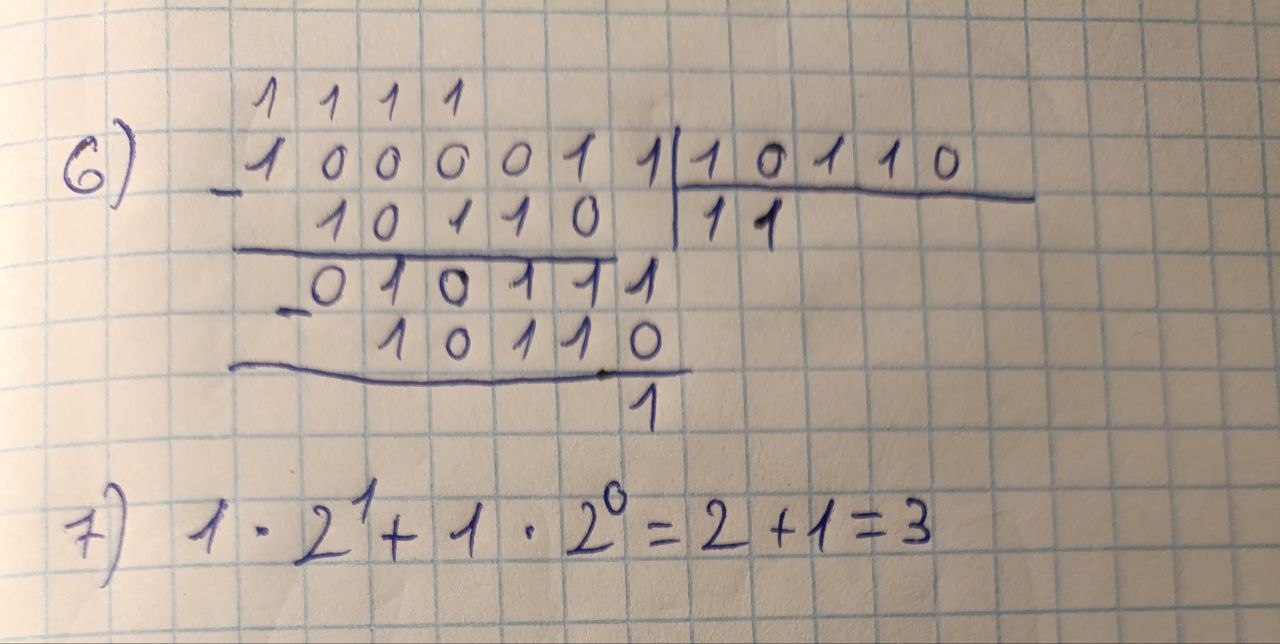 1 1 1 1
6) -1 0 0 0 0 1 1|1 0 1 1 0
1 0 1 1 0 |1 1
-0 1 0 1 1 1
1 0 1 1 0
1
7) 1 · 2¹ + 1 · 2⁰ = 2 + 1 = 3